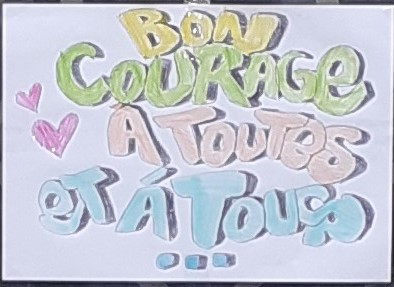 BON
COURAGE
A TOUTES
ET Á TOUS
...